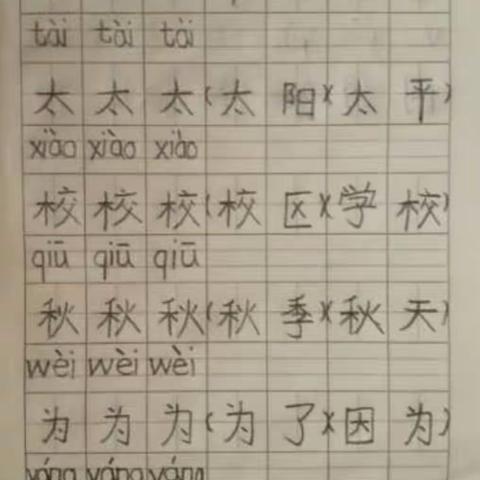 tài tài tài
太 太 太(太 阳)(太 平)
xiào xiào xiào
校 校 校(校 区)(学 校)
qiū qiū qiū
秋 秋 秋(秋 季)(秋 天)
wèi wèi wèi
为 为 为(为 了)(因 为)
yáng yáng yáng